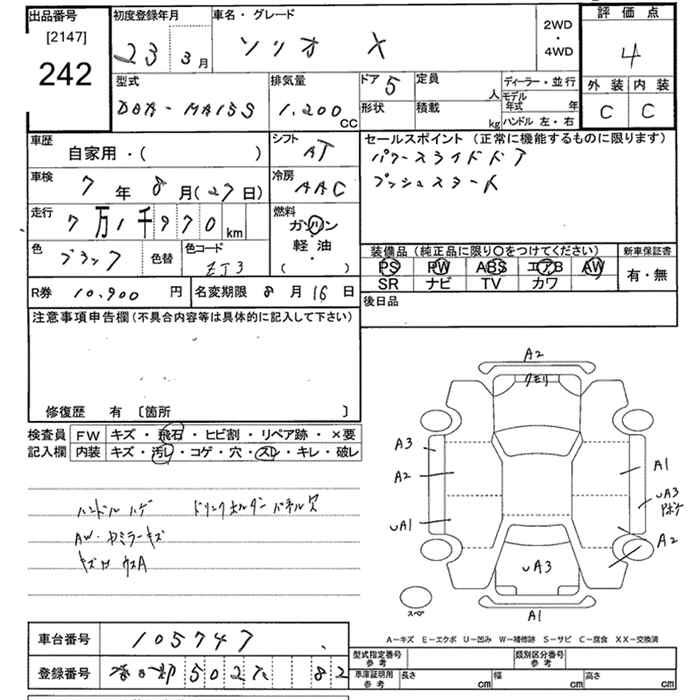 出品番号 初度登録年月 車名・グレード 2WD・4WD 評価点
[2147] 23 3月 ソリオ X 4
242 型式 排気量 ドア 5 定員 人 ディーラー・並行 外装 内装
DBA-MA15S 1,200cc 形状 積載 kg モデル年式 年 C C
ハンドル 左・右
車歴 自家用・( ) シフト AT セールスポイント(正常に機能するものに限ります)
車検 7年8月(27日) 冷房 AAC パワースライドドア
プッシュスタート
走行 7万1千970km 燃料 ガソリン 軽油・( )
色 ブラック 色替 色コード ZJ3 装備品(純正品に限り〇をつけてください) 新車保証書
PS PW ABS エアB AW 有・無
SR ナビ TV カワ
R券 10,900円 名変期限 8月16日 後日品
注意事項申告欄(不具合内容等は具体的に記入して下さい)
修復歴 有〔箇所 〕
検査員 FW キズ・飛石・ヒビ割・リペア跡・×要
記入欄 内装 キズ・汚レ・コゲ・穴・スレ・キレ・破レ
ハンドルハゲ ドリンクホルダーパネル穴
AW・ミラーキズ
A2
クモリ
A3
A2 A1
UA3
UA1 A2
UA3
スペ A1
A-キズ E-エクボ U-凹み W-補修跡 S-サビ C-腐食 XX-交換済
車台番号 105747 型式指定番号 参考 類別区分番号 参考
登録番号 502 82 車庫証明用 参考 長さ cm 幅 cm 高さ cm